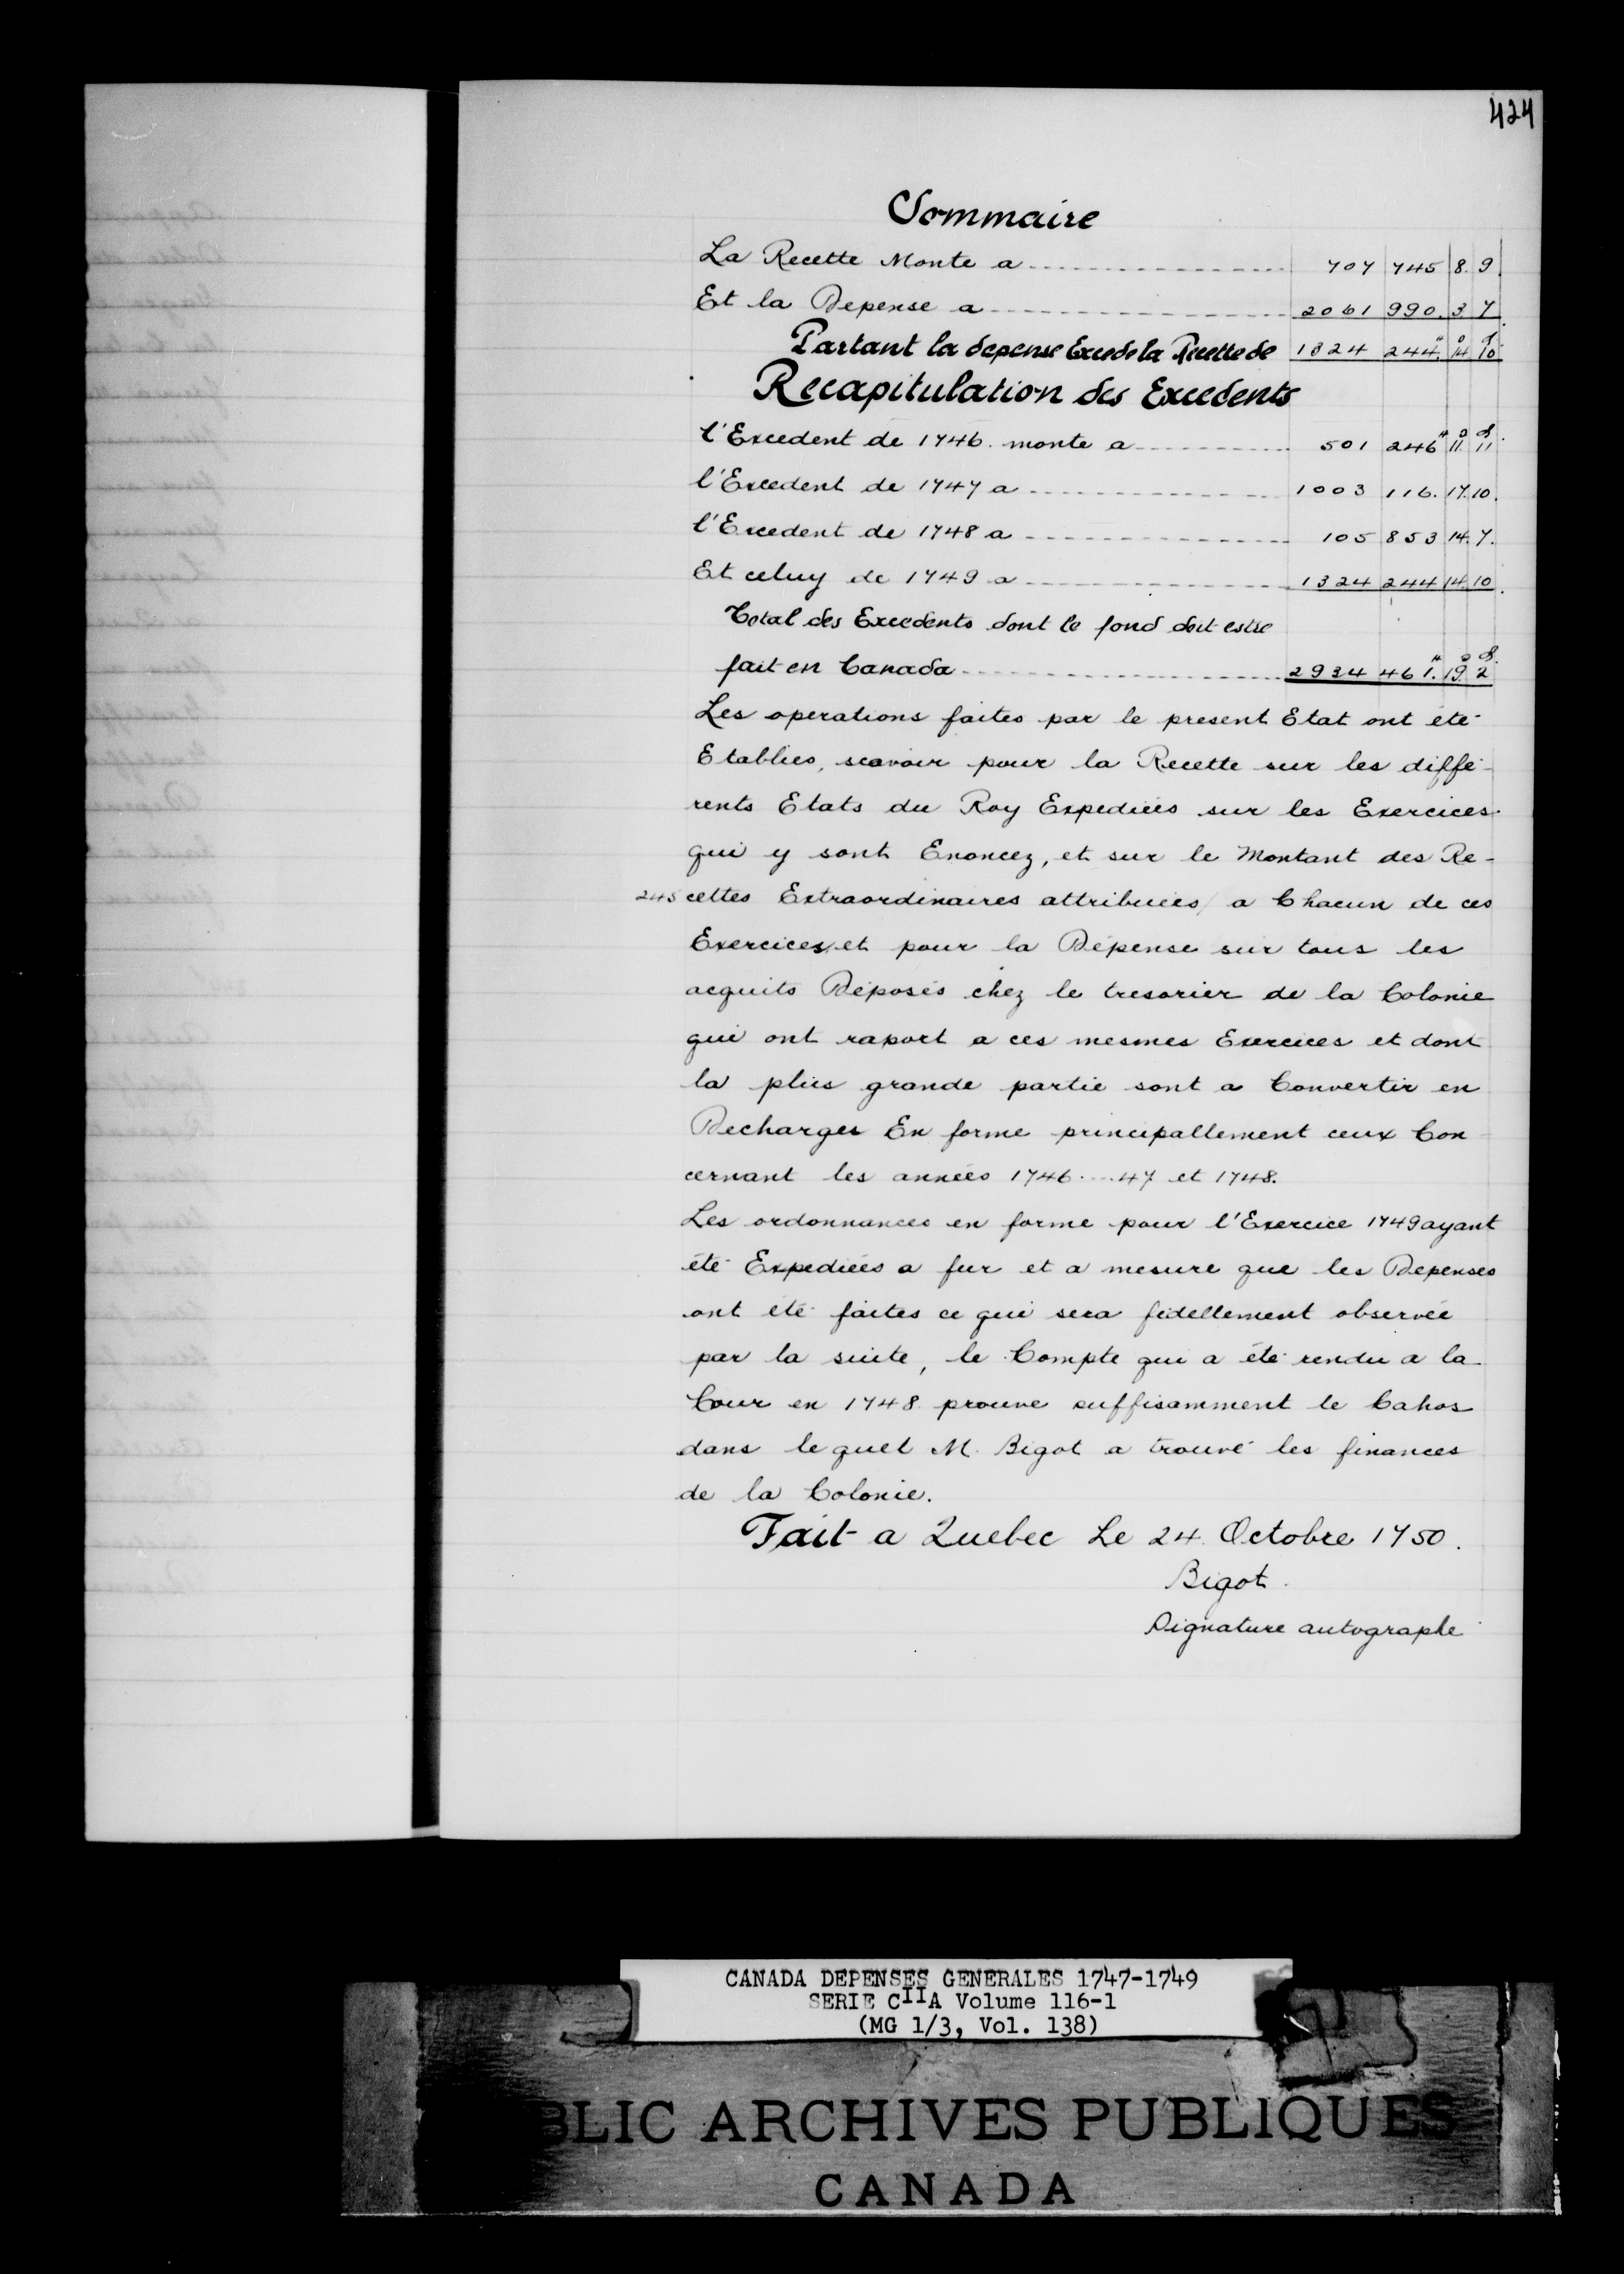 424
Sommaire
La Recette Monte a 707 745 8. 9.
Et la Depense a 2061 990. 3. 7.
Partant la depense Excede la Recette de 1324 244.# 14.s 10.d
Recapitulation des Excedents
l'Excedent de 1746. monte a 501 246# 11.s 11.d
l'Excedent de 1747 a 1003 116. 17. 10.
l'Excedent de 1748 a 105 853 14. 7.
Et celuy de 1749 a 1324 244 14. 10.
Total des Excedents dont le fond doit estre
fait en Canada 2934 461.# 19.s 2.d
Les operations faites par le present Etat ont été
Etablies, scavoir pour la Recette sur les diffé-
rents Etats du Roy Expediées sur les Exercices
qui y sont Enoncez, et sur le Montant des Re-
245 cettes Extraordinaires attribuées/ a Chacun de ces
Exercices, et pour la Dépense sur tous les
acquits Déposés chez le tresorier de la Colonie
qui ont raport a ces mesmes Exercices et dont
la plus grande partie sont a Convertir en
Decharges En forme principallement ceux Con
cernant les années 1746....47 et 1748.
Les ordonnances en forme pour l'Exercice 1749 ayant
été Expediées a fur et a mesure que les Depenses
ont été faites ce qui sera fidellement observée
par la suite, le Compte qui a été rendu a la
Cour en 1748 prouve suffisamment le Cahos
dans le quel M. Bigot a trouvé les finances
de la Colonie.
Fait a Quebec Le 24 Octobre 1750.
Bigot.
Signature autographe
CANADA DEPENSES GENERALES 1747-1749
SERIE CIIA Volume 116-1
(MG 1/3, Vol. 138)
BLIC ARCHIVES PUBLIQUES
CANADA